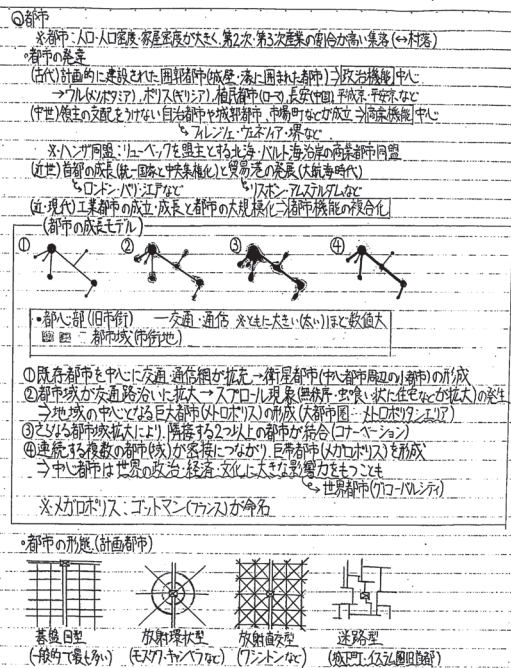 ◎都市
※都市：人口・人口密度・家屋密度が大きく、第2次・第3次産業の割合が高い集落(↔村落)
◦都市の発達
(古代)計画的に建設された囲郭都市(城壁・濠に囲まれた都市)⇒政治機能中心
→ウル(メソポタミア)、ポリス(ギリシア)、植民都市(ローマ)、長安(中国)、平城京・平安京など
(中世)領主の支配をうけない自治都市や城郭都市、市場町などが成立⇒商業機能中心
フィレンツェ・ヴェネツィア・堺など
※ハンザ同盟：リューベックを盟主とする北海・バルト海沿岸の商業都市同盟
(近世)首都の成長(統一国家と中央集権化)と貿易港の発展(大航海時代)
ロンドン・パリ・江戸など リスボン・アムステルダムなど
(近・現代)工業都市の成立・成長と都市の大規模化⇒都市機能の複合化
(都市の成長モデル)
① ② ③ ④
・都心部(旧市街) ―交通・通信 ※ともに大きい(太い)ほど数値大
都市域(市街地)
①既存都市を中心に交通・通信網が拡充→衛星都市(中心都市周辺の小都市)の形成
②都市域が交通路沿いに拡大→スプロール現象(無秩序・虫食い状に住宅などが拡大)の発生
⇒地域の中心となる巨大都市(メトロポリス)の形成(大都市圏…メトロポリタンエリア)
③さらなる都市域拡大により、隣接する2つ以上の都市が結合(コナーベーション)
④連続する複数の都市(域)が密接につながり、巨帯都市(メガロポリス)を形成
⇒中心都市は世界の政治・経済・文化に大きな影響力をもつことも
→世界都市(グローバルシティ)
※メガロポリス：ゴットマン(フランス)が命名
◦都市の形態(計画都市)
碁盤目型 放射環状型 放射直交型 迷路型
(一般的で最も多い) (モスクワ・キャンベラなど) (ワシントンなど) (城下町・イスラム圏旧首都)